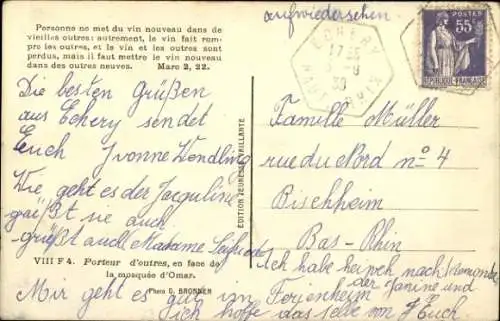 Personne ne met du vin nouveau dans de
vieilles outres: autrement, le vin fait rom-
pre les outres, et le vin et les outres sont
perdus, mais il faut mettre le vin nouveau
dans des outres neuves. Marc 2, 22.
aufwiedersehen
ECHERY
POSTES
55c
REPUBLIQUE FRANÇAISE
Die besten Grüßen
aus Echery sendet
Euch Yvonne Wendling
Wie geht es der Jacquline
grüßt sie auch
grüßt auch Madame
VIII F 4. Porteur d'outres, en face de
la mosquée d'Omar.
Photo G. BRONNER
Mir geht es gut im Ferienheim
ich hoffe das selbe von Euch
EDITION JEUNESSE VAILLANTE
Famille Müller
rue du Nord no 4
Bischheim
Bas-Rhin
Ich habe heimweh nach
der Janine und